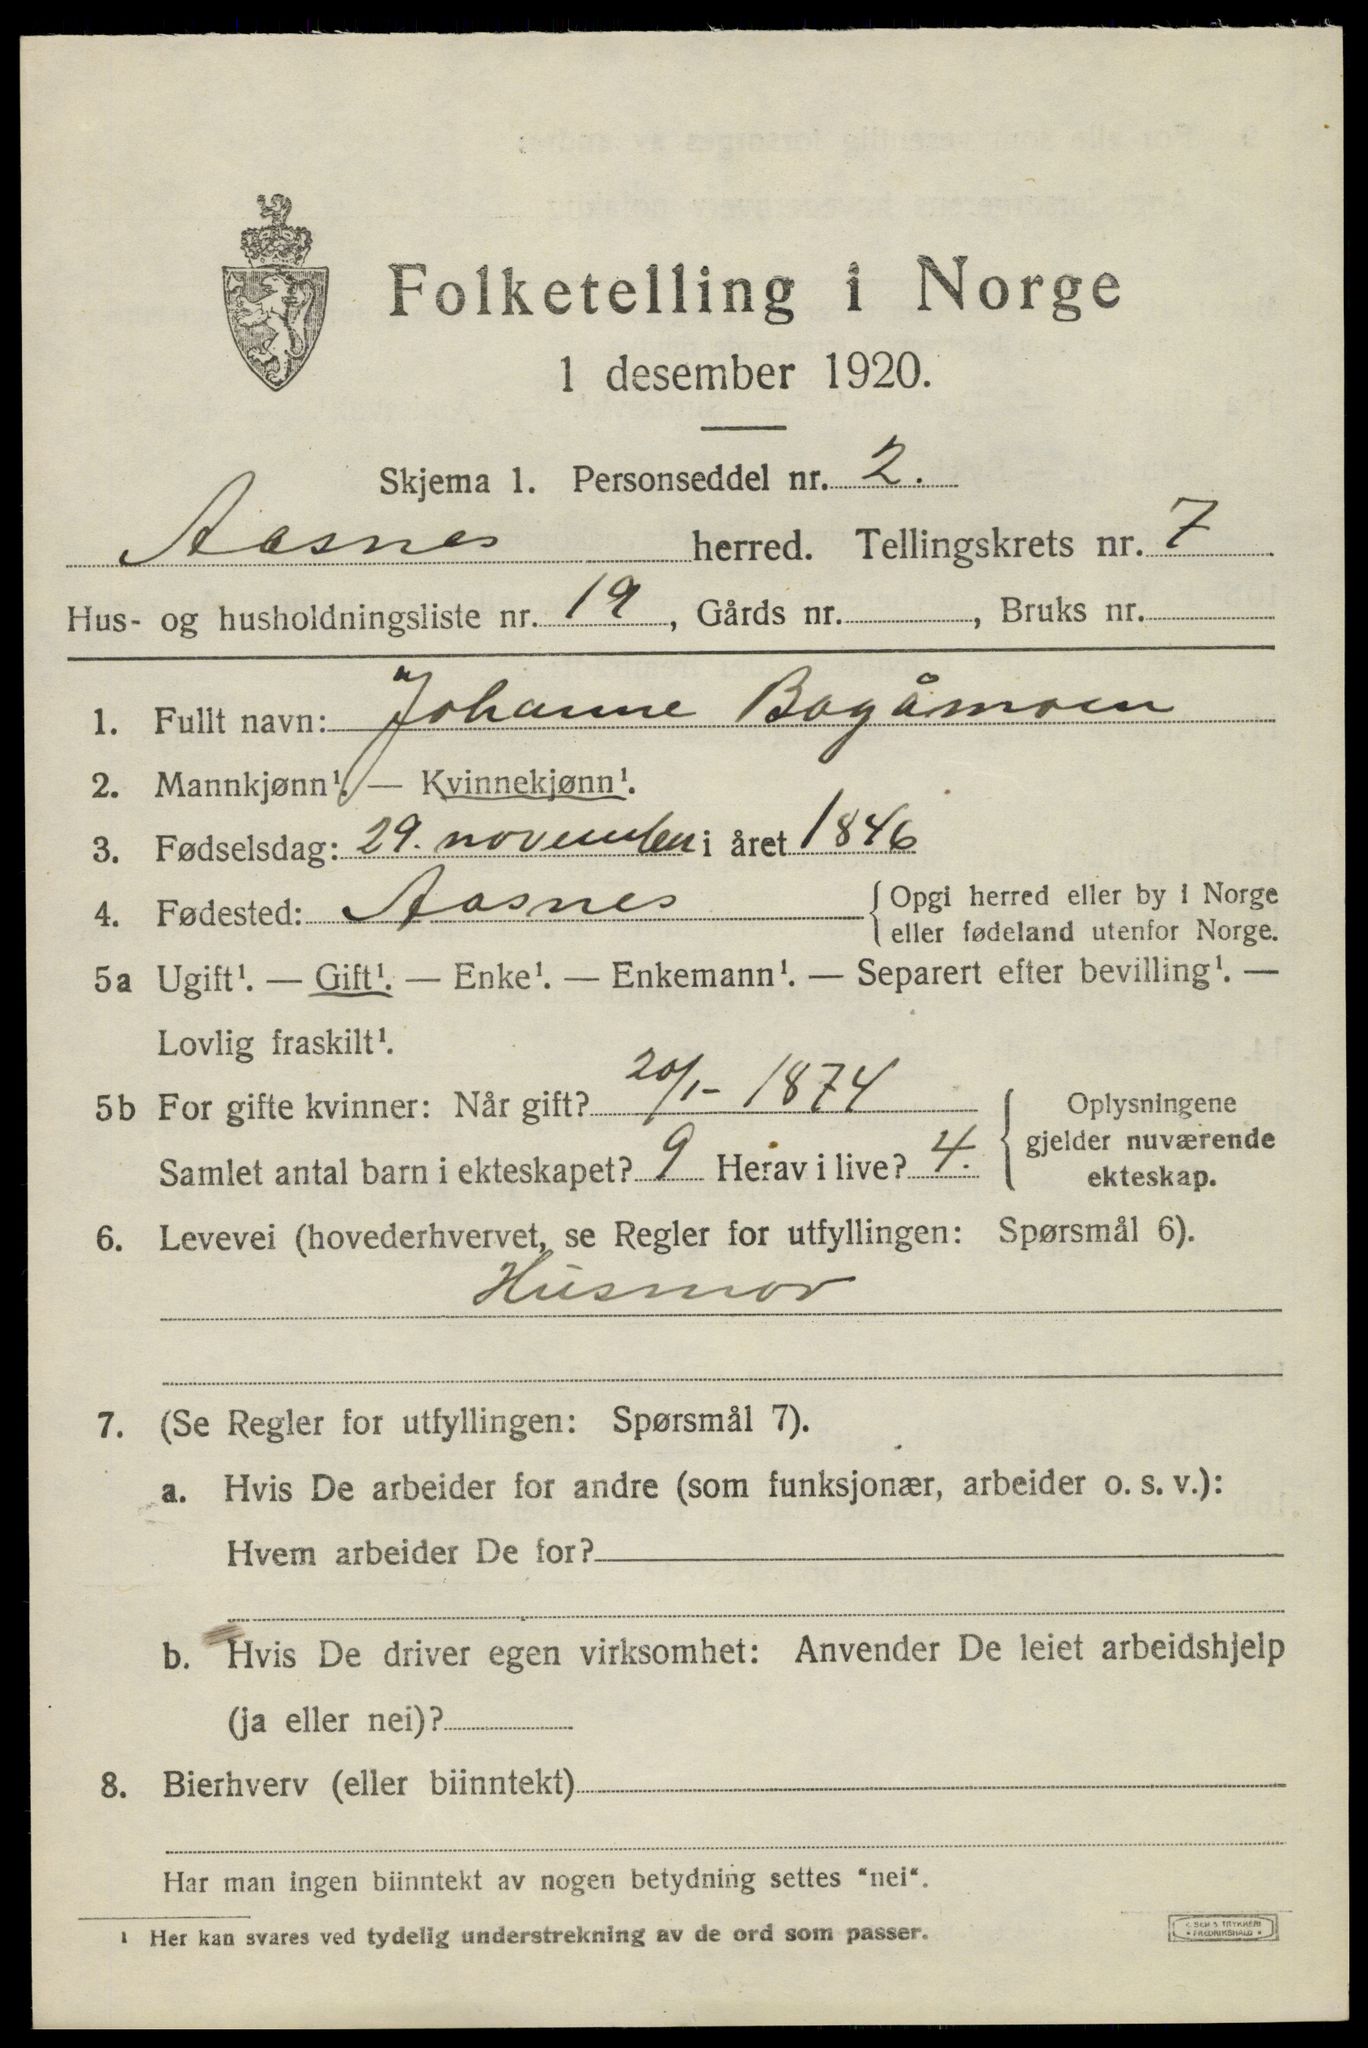 Folketelling i Norge
1 desember 1920.
Skjema 1. Personseddel nr. 2.
Aasnes herred. Tellingskrets nr. 7
Hus- og husholdningsliste nr. 19, Gårds nr. , Bruks nr.
1. Fullt navn: Johanne Bogåmoen
2. Mannkjønn¹. — Kvinnekjønn¹.
3. Fødselsdag: 29. november i året 1846
4. Fødested: Aasnes {Opgi herred eller by i Norge
eller fødeland utenfor Norge.
5a Ugift¹. — Gift¹. — Enke¹. — Enkemann¹. — Separert efter bevilling¹. —
Lovlig fraskilt¹.
5b For gifte kvinner: Når gift? 20/1- 1874
Samlet antal barn i ekteskapet? 9 Herav i live? 4.
Oplysningene
gjelder nuværende
ekteskap.
6. Levevei (hovederhvervet, se Regler for utfyllingen: Spørsmål 6).
Husmor
7. (Se Regler for utfyllingen: Spørsmål 7).
a. Hvis De arbeider for andre (som funksjonær, arbeider o. s. v.):
Hvem arbeider De for?
b. Hvis De driver egen virksomhet: Anvender De leiet arbeidshjelp
(ja eller nei)?
8. Bierhverv (eller biinntekt)
Har man ingen biinntekt av nogen betydning settes "nei".
¹ Her kan svares ved tydelig understrekning av de ord som passer.
TRYKKERI
FREDRIKSHALD